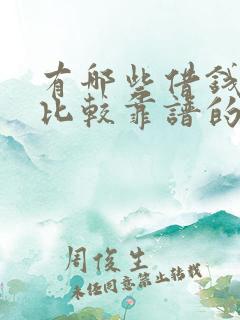 有哪些借錢
比較靠譜的
周俊生
未经同意禁止转载